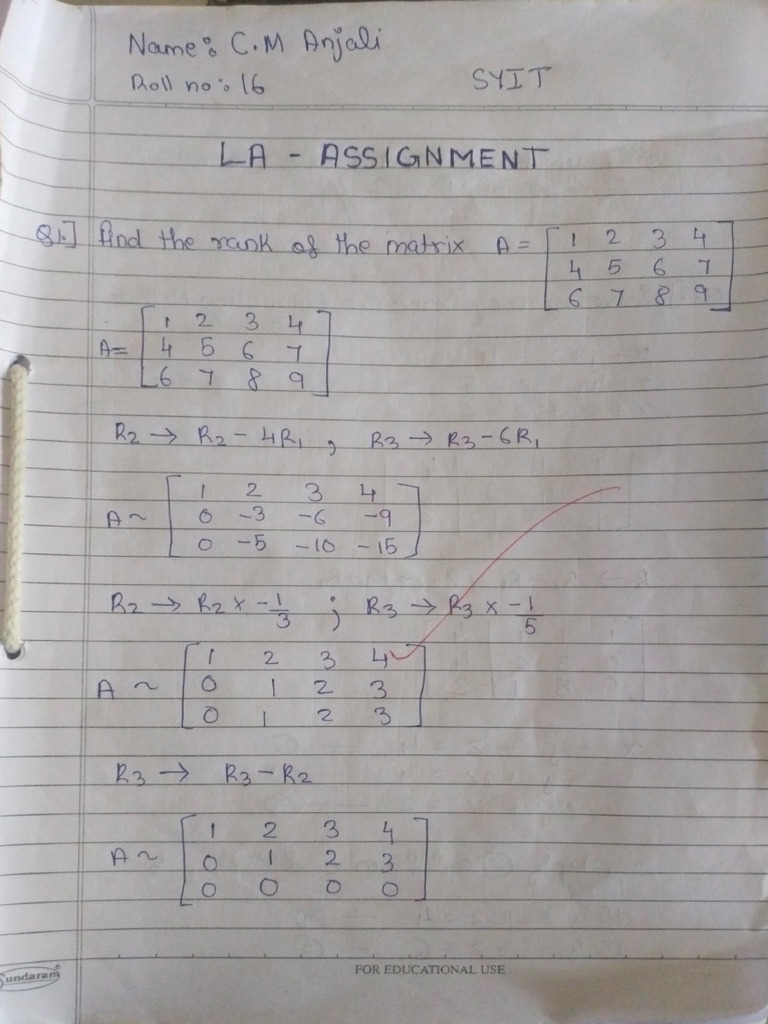 Name: C.M Anjali
Roll no: 16 SYIT
LA - ASSIGNMENT
Q1.] Find the rank of the matrix A = [1 2 3 4
4 5 6 7
6 7 8 9]
A= [1 2 3 4
4 5 6 7
6 7 8 9]
R2 → R2 - 4R1 , R3 → R3 - 6R1
A ~ [1 2 3 4
0 -3 -6 -9
0 -5 -10 -15]
R2 → R2 x -1/3 ; R3 → R3 x -1/5
A ~ [1 2 3 4
0 1 2 3
0 1 2 3]
R3 → R3 - R2
A ~ [1 2 3 4
0 1 2 3
0 0 0 0]
Sundaram®
FOR EDUCATIONAL USE